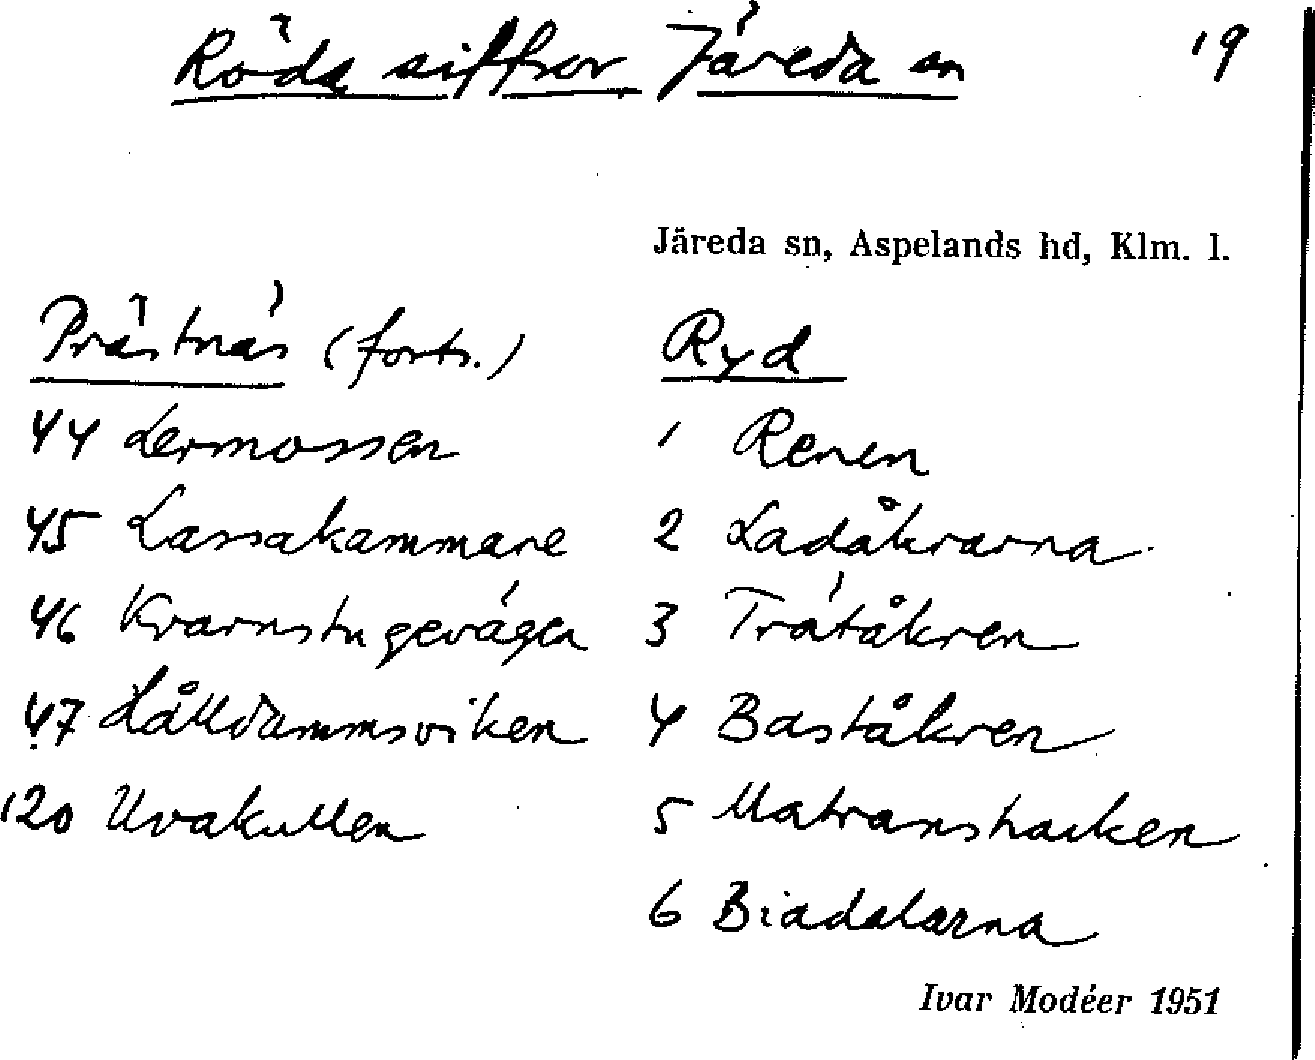 Röda siffror Järeda sn 19
Järeda sn, Aspelands hd, Klm. l.
Prästnäs (forts.)
44 Lermossen
45 Lassakammare
46 Kvarnstugevägen
47 Hålldammsviken
120 Uvakullen
Ryd
1 Renen
2 Ladåkrarna
3 Trätåkren
4 Baståkren
5 Matransbacken
6 Biadalarna
Ivar Modéer 1951